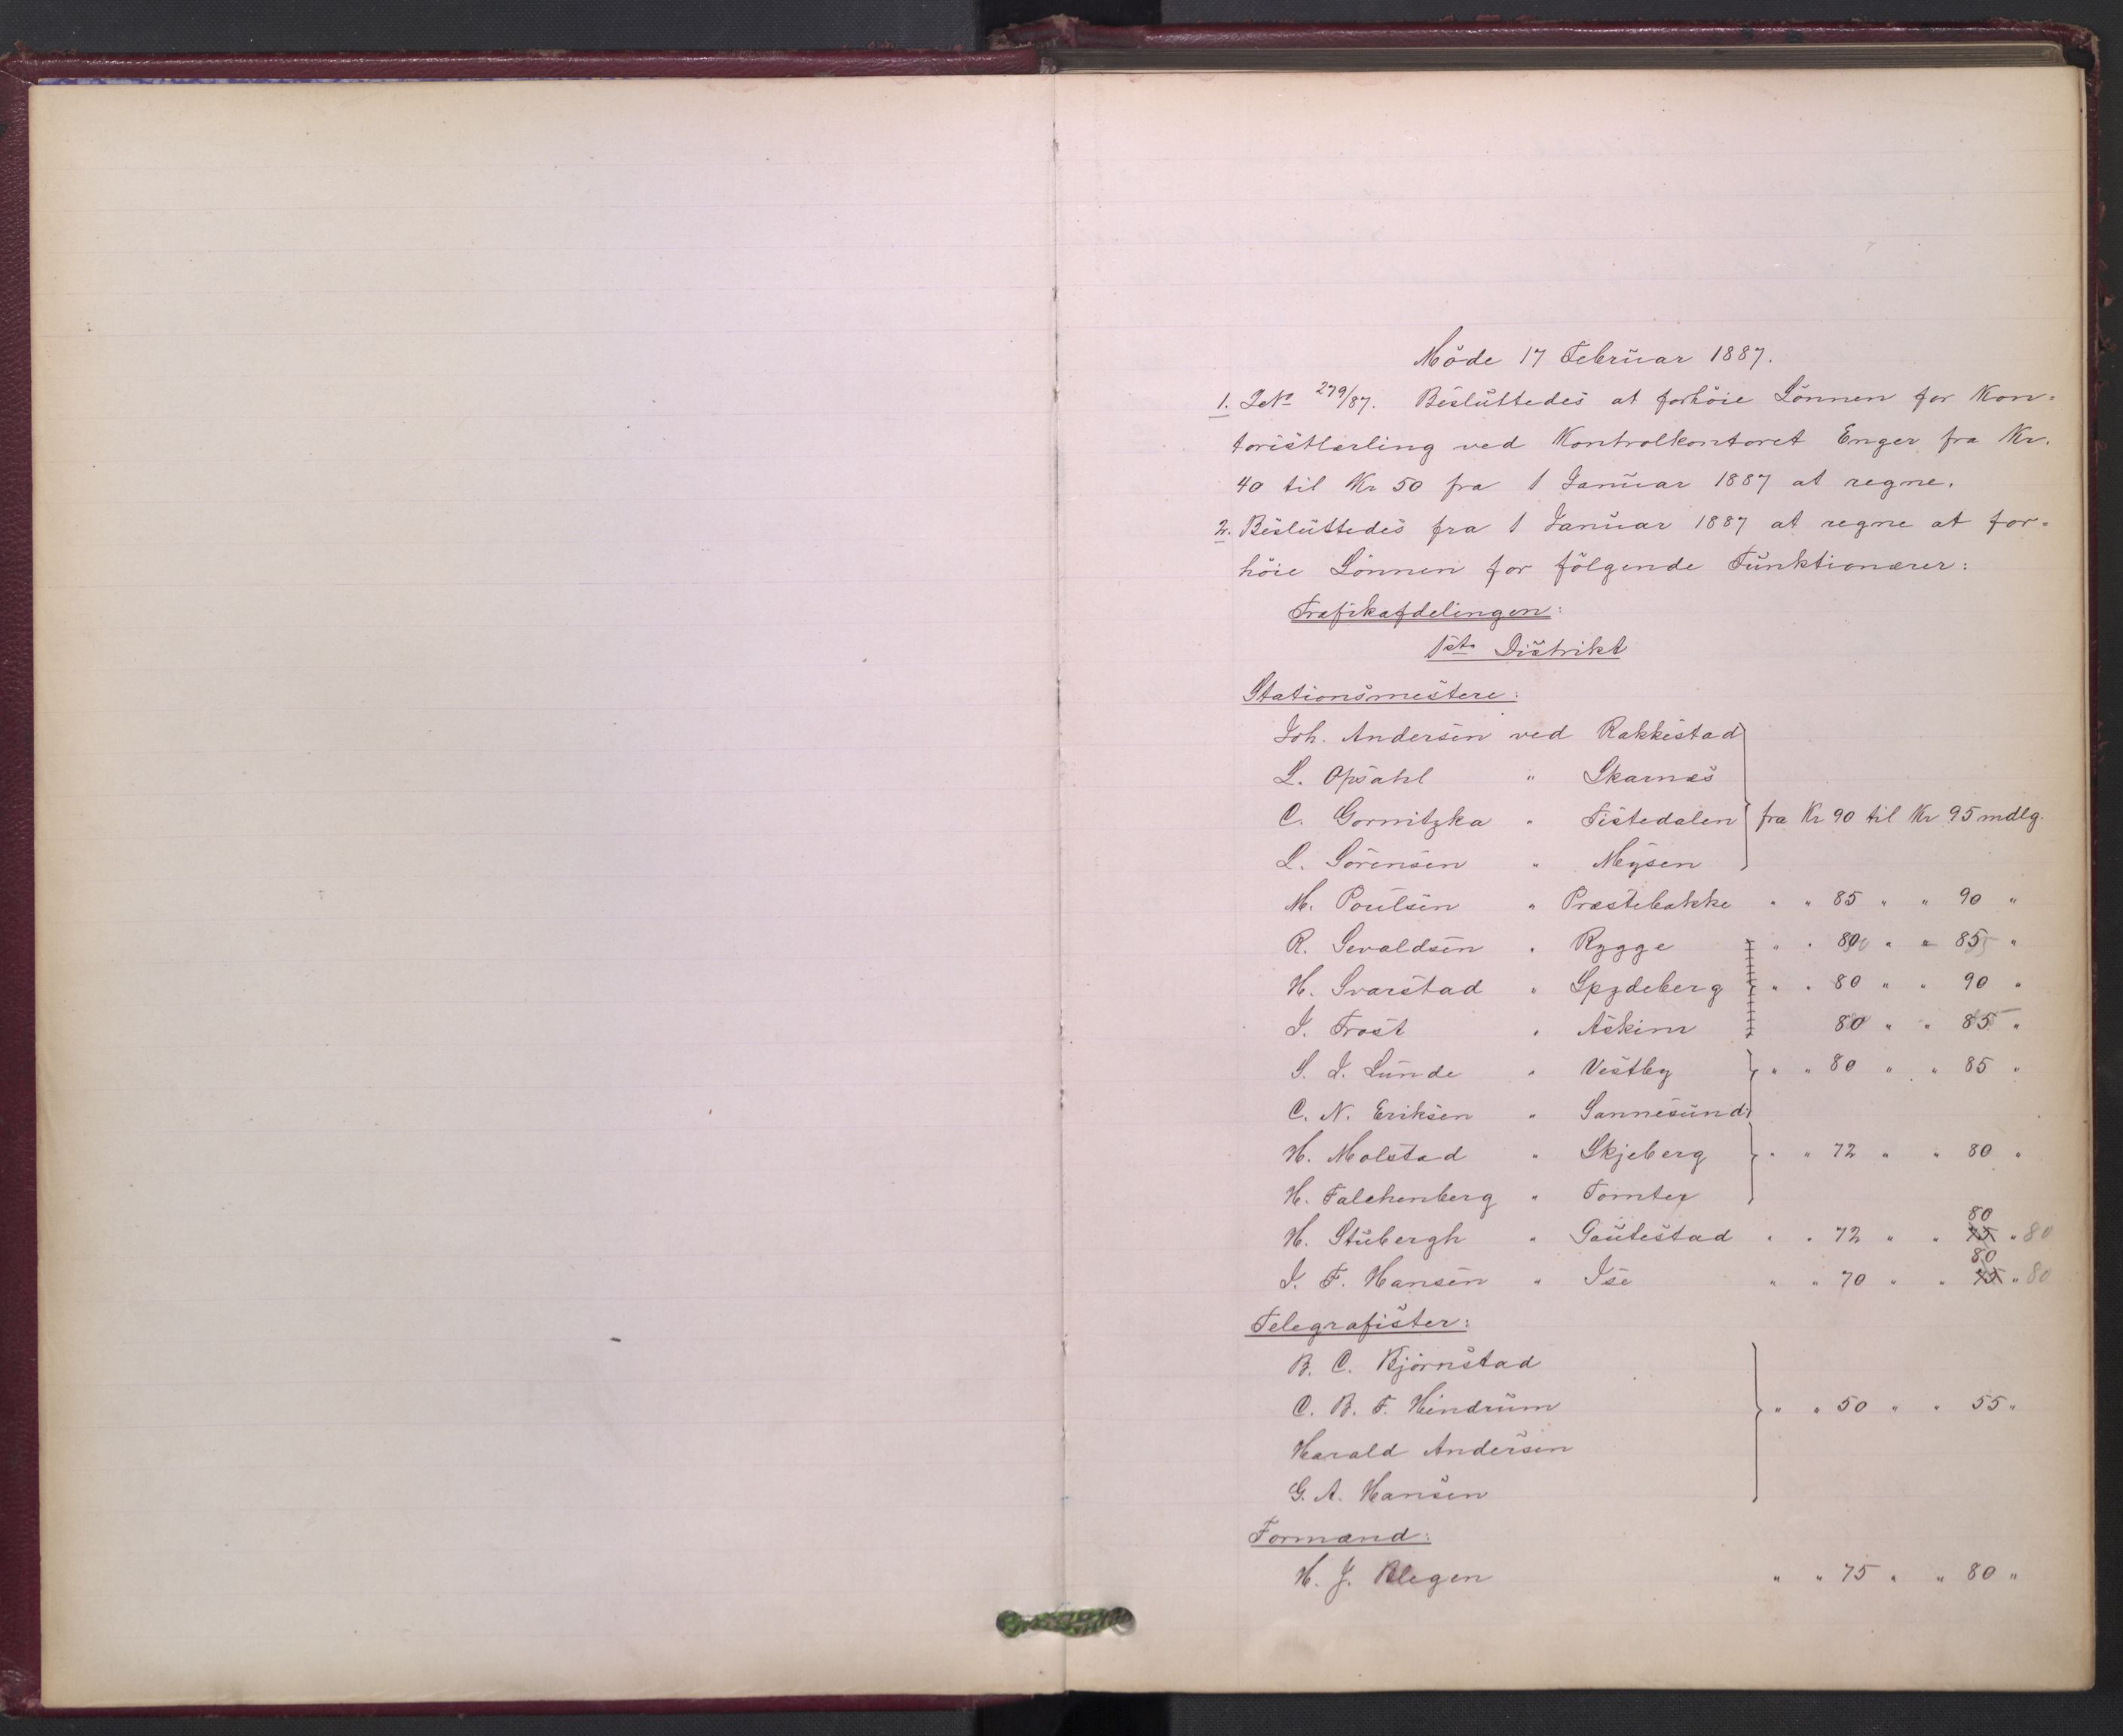 Møde 17 Februar 1887.
1. JN° 279/87. Besluttedes at forhøie Lønnen for Kon=
toristlærling ved Kontrolkontoret Enger fra Kr.
40 til Kr 50 fra 1 Januar 1887 at regne.
2. Besluttedes fra 1 Januar 1887 at regne at for=
høie Lønnen for følgende Funktionærer:
Trafikafdelingen:
1ste Distrikt
Stationsmestere:
Joh. Andersen ved Rakkestad
L. Opsahl " Skarnæs
C. Gornitzka " Tistedalen } fra Kr 90 til Kr 95 mdlg.
L. Sørensen " Mysen
M. Poulsen " Præstebakke " " 85 " " 90 "
R. Sevaldsen " Rygge " " 80 " " 85 "
H. Svarstad " Spydeberg " " 80 " " 90 "
J. Trost " Askim 80 " " 85 "
S. J. Lunde " Vestby } " " 80 " " 85 "
C. N. Eriksen " Sannesund
H. Molstad " Skjeberg } " " 72 " " 80 "
H. Falchenberg " Tomter
H. Stubergh " Gautestad " " 72 " " 75 80 " 80
J. F. Hansen " Ise " " 70 " " 75 80 " 80
Telegrafister:
B. C. Bjørnstad
C. B. F. Hindrum } " " 50 " " 55 "
Harald Andersen
G. A. Hansen
Formænd:
H. J. Blegen " " 75 " " 80 "